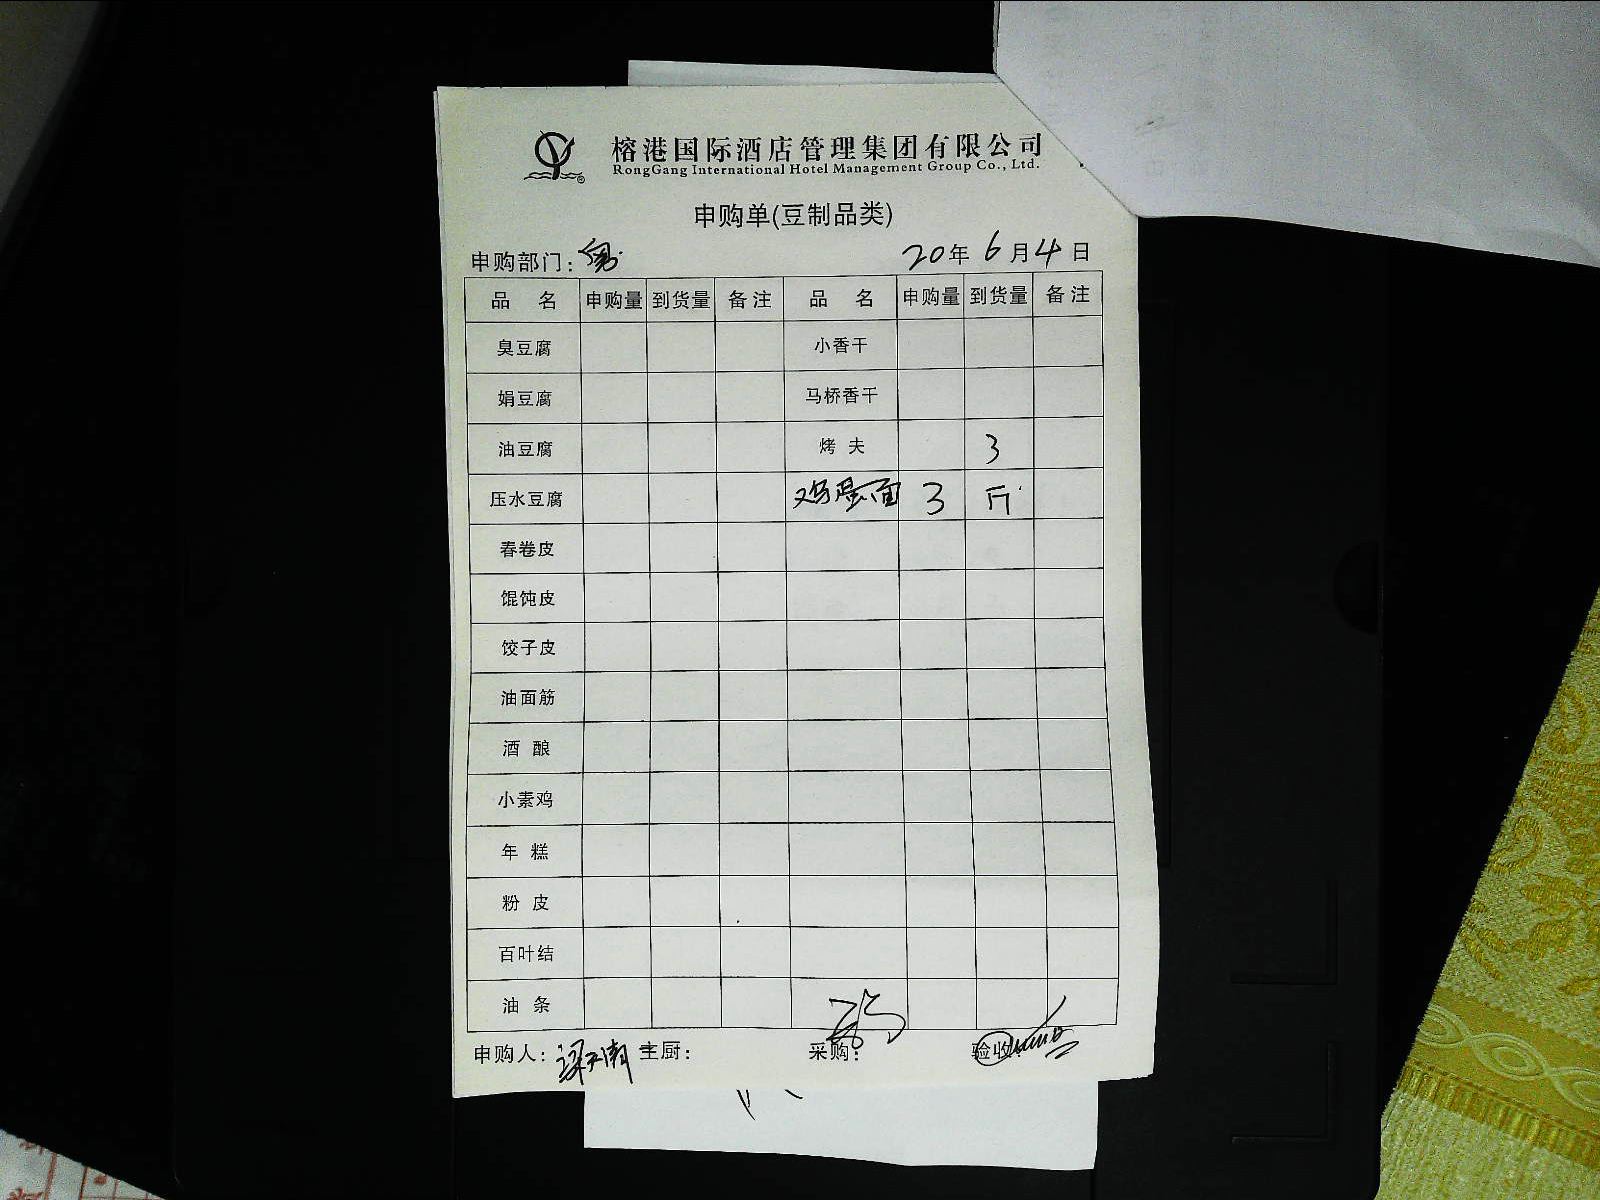 榕港国际酒店管理集团有限公司
RongGang International Hotel Management Group Co., Ltd.
申购单(豆制品类)
申购部门: 20年6月4日
品 名 申购量 到货量 备注 品 名 申购量 到货量 备注
臭豆腐 小香干
娟豆腐 马桥香干
油豆腐 烤 夫 3
压水豆腐 鸡蛋面 3 斤
春卷皮
馄饨皮
饺子皮
油面筋
酒 酿
小素鸡
年 糕
粉 皮
百叶结
油 条
申购人: 主厨: 采购: 验收: